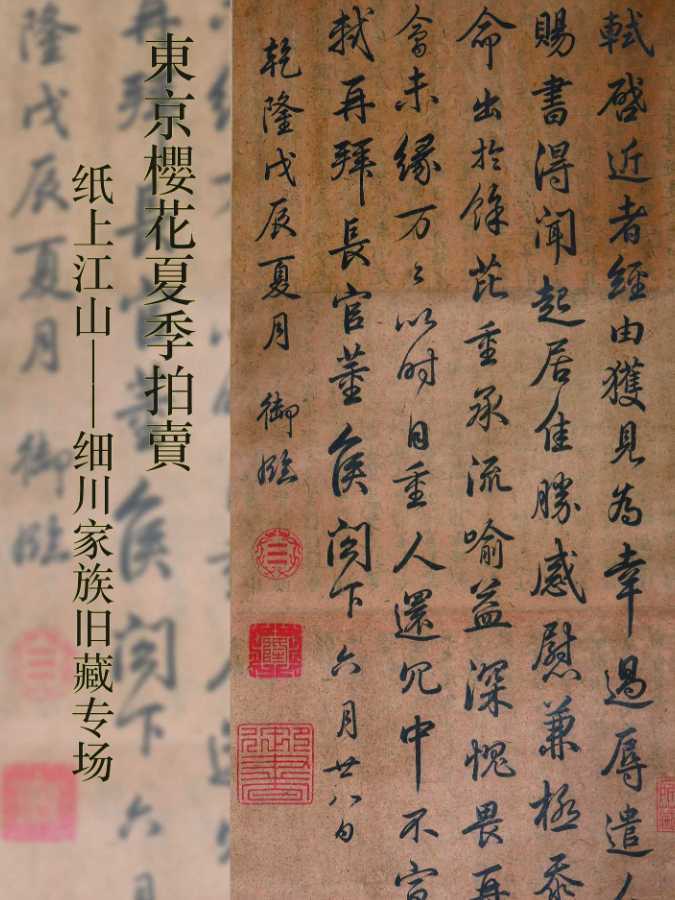 東京櫻花夏季拍賣
纸上江山——细川家族旧藏专场
軾啓近者經由獲見為幸過辱遣人
賜書得聞起居佳勝感慰兼極忝
命出於餘芘重承流喻益深愧畏再
會未緣万〻以时自重人還冗中不宣
軾再拜長官董侯閣下六月廿八日
乾隆戊辰夏月 御臨